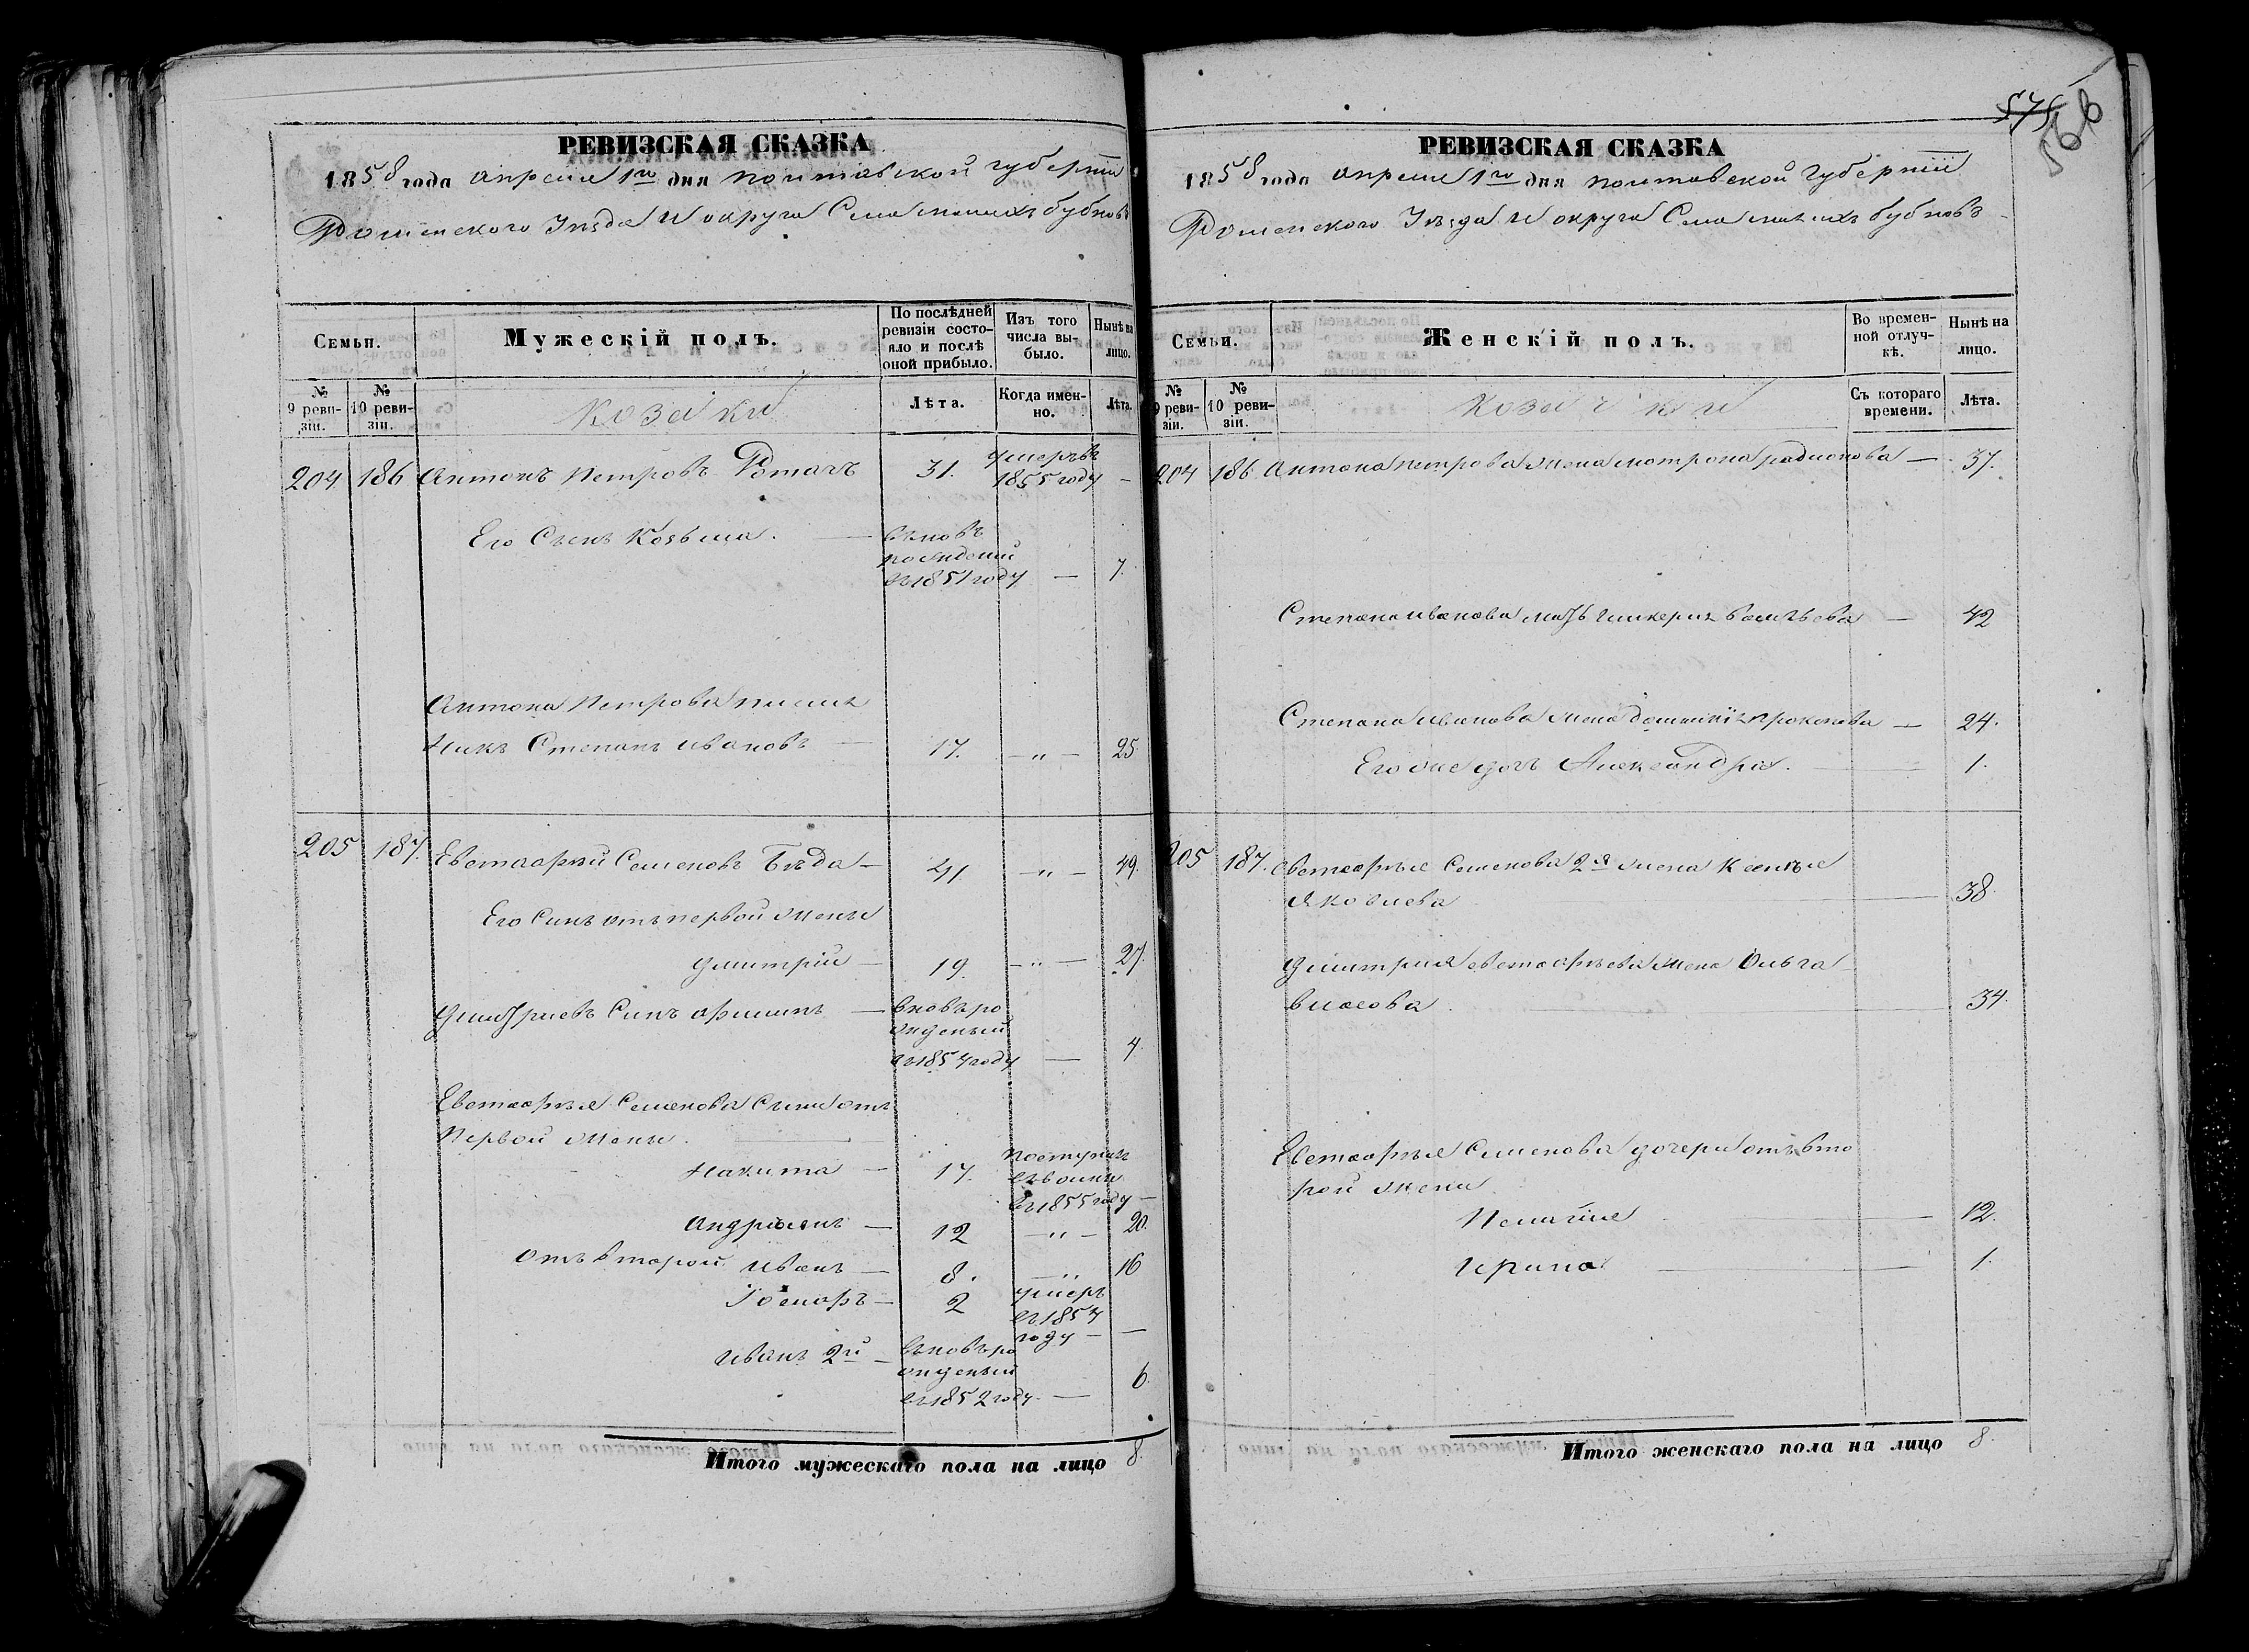 РЕВИЗСКАЯ СКАЗКА
1858 года апреля 1го дня полтавской губернии
Роменского Уезда и округа Села малыхъ бубновъ
Семьи.
Мужескій полъ.
По послѣдней ревизіи состояло и послѣ оной прибыло.
Изъ того числа выбыло.
Нынѣ на лицо.
№ 9 ревизіи.
№ 10 ревизіи.
козаки
Лѣта.
Когда именно.
Лѣта.
204 186 Антонъ Петровъ Ротачъ 31. умеръ въ
1855 году —
Его Сынъ Козьма. — вновь
рожденый
въ 1851 году — 7.
Антона Петрова племя
никъ Степанъ Ивановъ — 17. —„— 25
205 187. Евстафий Семеновъ Бѣда — 41. —„— 49.
Его Синъ отъ первой жены
Дмитрій — 19. —„— 27.
Дмитриевъ Синъ Афимъ — вновь ро
жденый
въ 1854 году — 4.
Евстафья Семенова Сыны отъ
Первой жены.
Накита — 17. поступилъ
въ
въ 1855 году —
Андріянъ — 12 —„— 20.
Отъ второй Иванъ — 8. —„ 16
— 2 умеръ
въ 1854
году — —
Иванъ 2й — вновь ро
жденый
въ 1852 году — 6.
Итого мужескаго пола на лицо 8.
575
566
РЕВИЗСКАЯ СКАЗКА
1858 года апреля 1го дня полтавской губернии
Роменского Уѣзда и округа Села малыхъ бубновъ
Семьи.
Женскій полъ.
Во временной отлучкѣ.
Нынѣ на лицо.
№ 9 ревизіи.
№ 10 ревизіи.
козачки
Съ котораго времени.
Лѣта.
204 186 Антона петрова жена мотрона радионова — 37.
Степана иванова мать — 42
Степана иванова жена прокопова — 24.
Его же дочь Александра. — 1.
205 187. евстафья Семенова 2я жена Ксенья
Яковлева — 38.
Дмитрия евстафьева жена Ольга
власова — 34.
Евстафья Семенова дочери отъ вто
рой жены
Пелагия — 12.
Ирина — 1.
Итого женскаго пола на лицо 8.